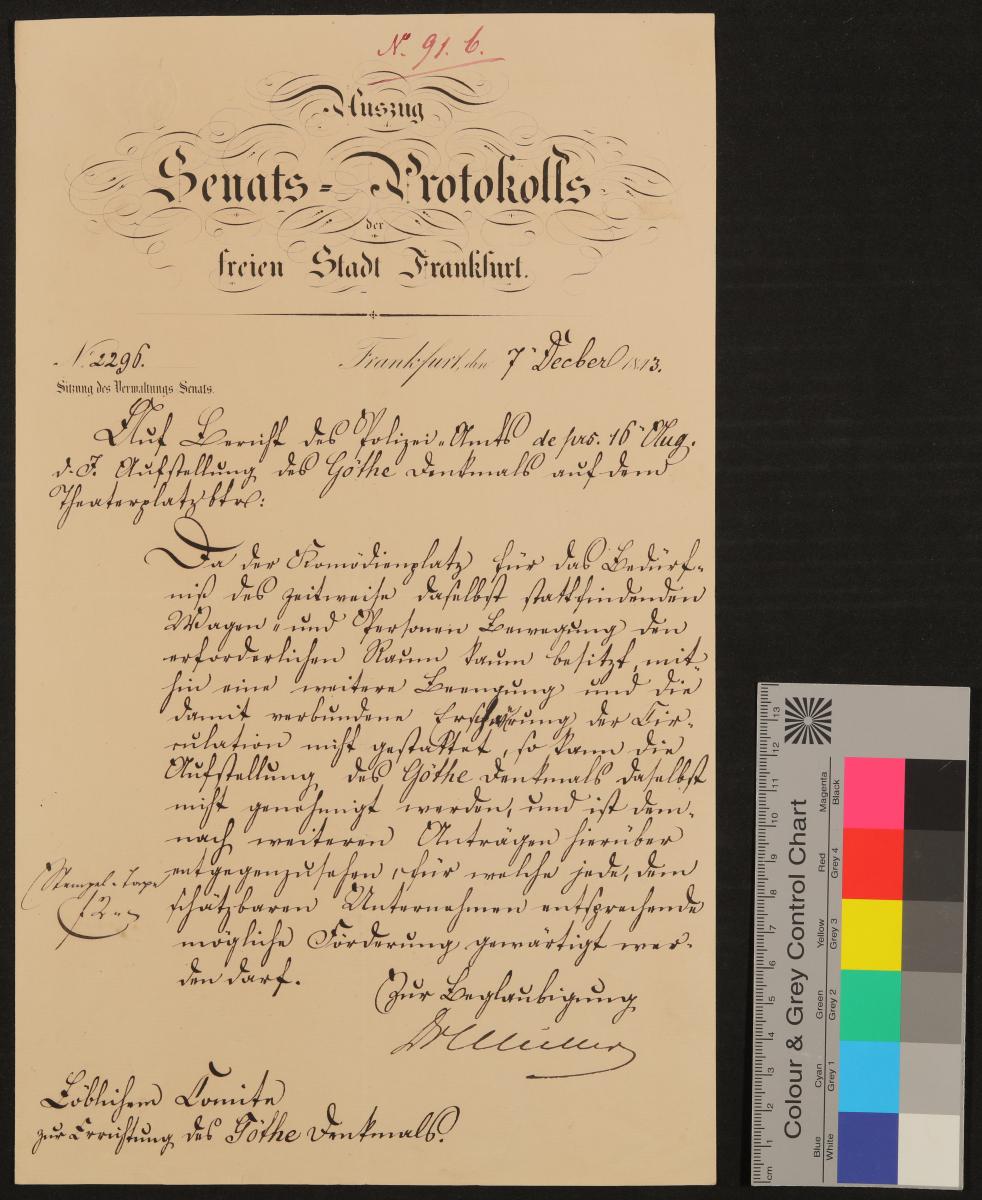 N. 91. b.
Auszug
Senats-Protokolls
der
freien Stadt Frankfurt.
N. 2296.
Frankfurt, den 7 Decber 1843.
Sitzung des Verwaltungs Senats.
Auf Bericht des Polizei-Amts de prs. 16 Aug.
d. J. Aufstellung des Göthe Denkmals auf dem
Theaterplatz btr:
Da der Komödienplatz für das Bedürf-
niß des zeitweise daselbst stattfindenden
Wagen- und Personen Bewegung den
erforderlichen Raum kaum besitzt, mit-
hin eine weitere Beengung und die
damit verbundene Erschwerung der Cir-
culation nicht gestattet, so kann die
Aufstellung des Göthe Denkmals daselbst
nicht genehmigt werden, und ist dem-
nach weiteren Anträgen hierüber
entgegenzusehen, für welche jede, dem
schätzbaren Unternehmen entsprechende
mögliche Förderung gewärtigt wer-
den darf.
Stempel-Taxe
Zur Beglaubigung
Müller
Löblichem Comite
zur Errichtung des Göthe Denkmals.
Colour & Grey Control Chart
Blue Cyan Green Yellow Red Magenta
White Grey 1 Grey 2 Grey 3 Grey 4 Black
cm 1 2 3 4 5 6 7 8 9 10 11 12 13